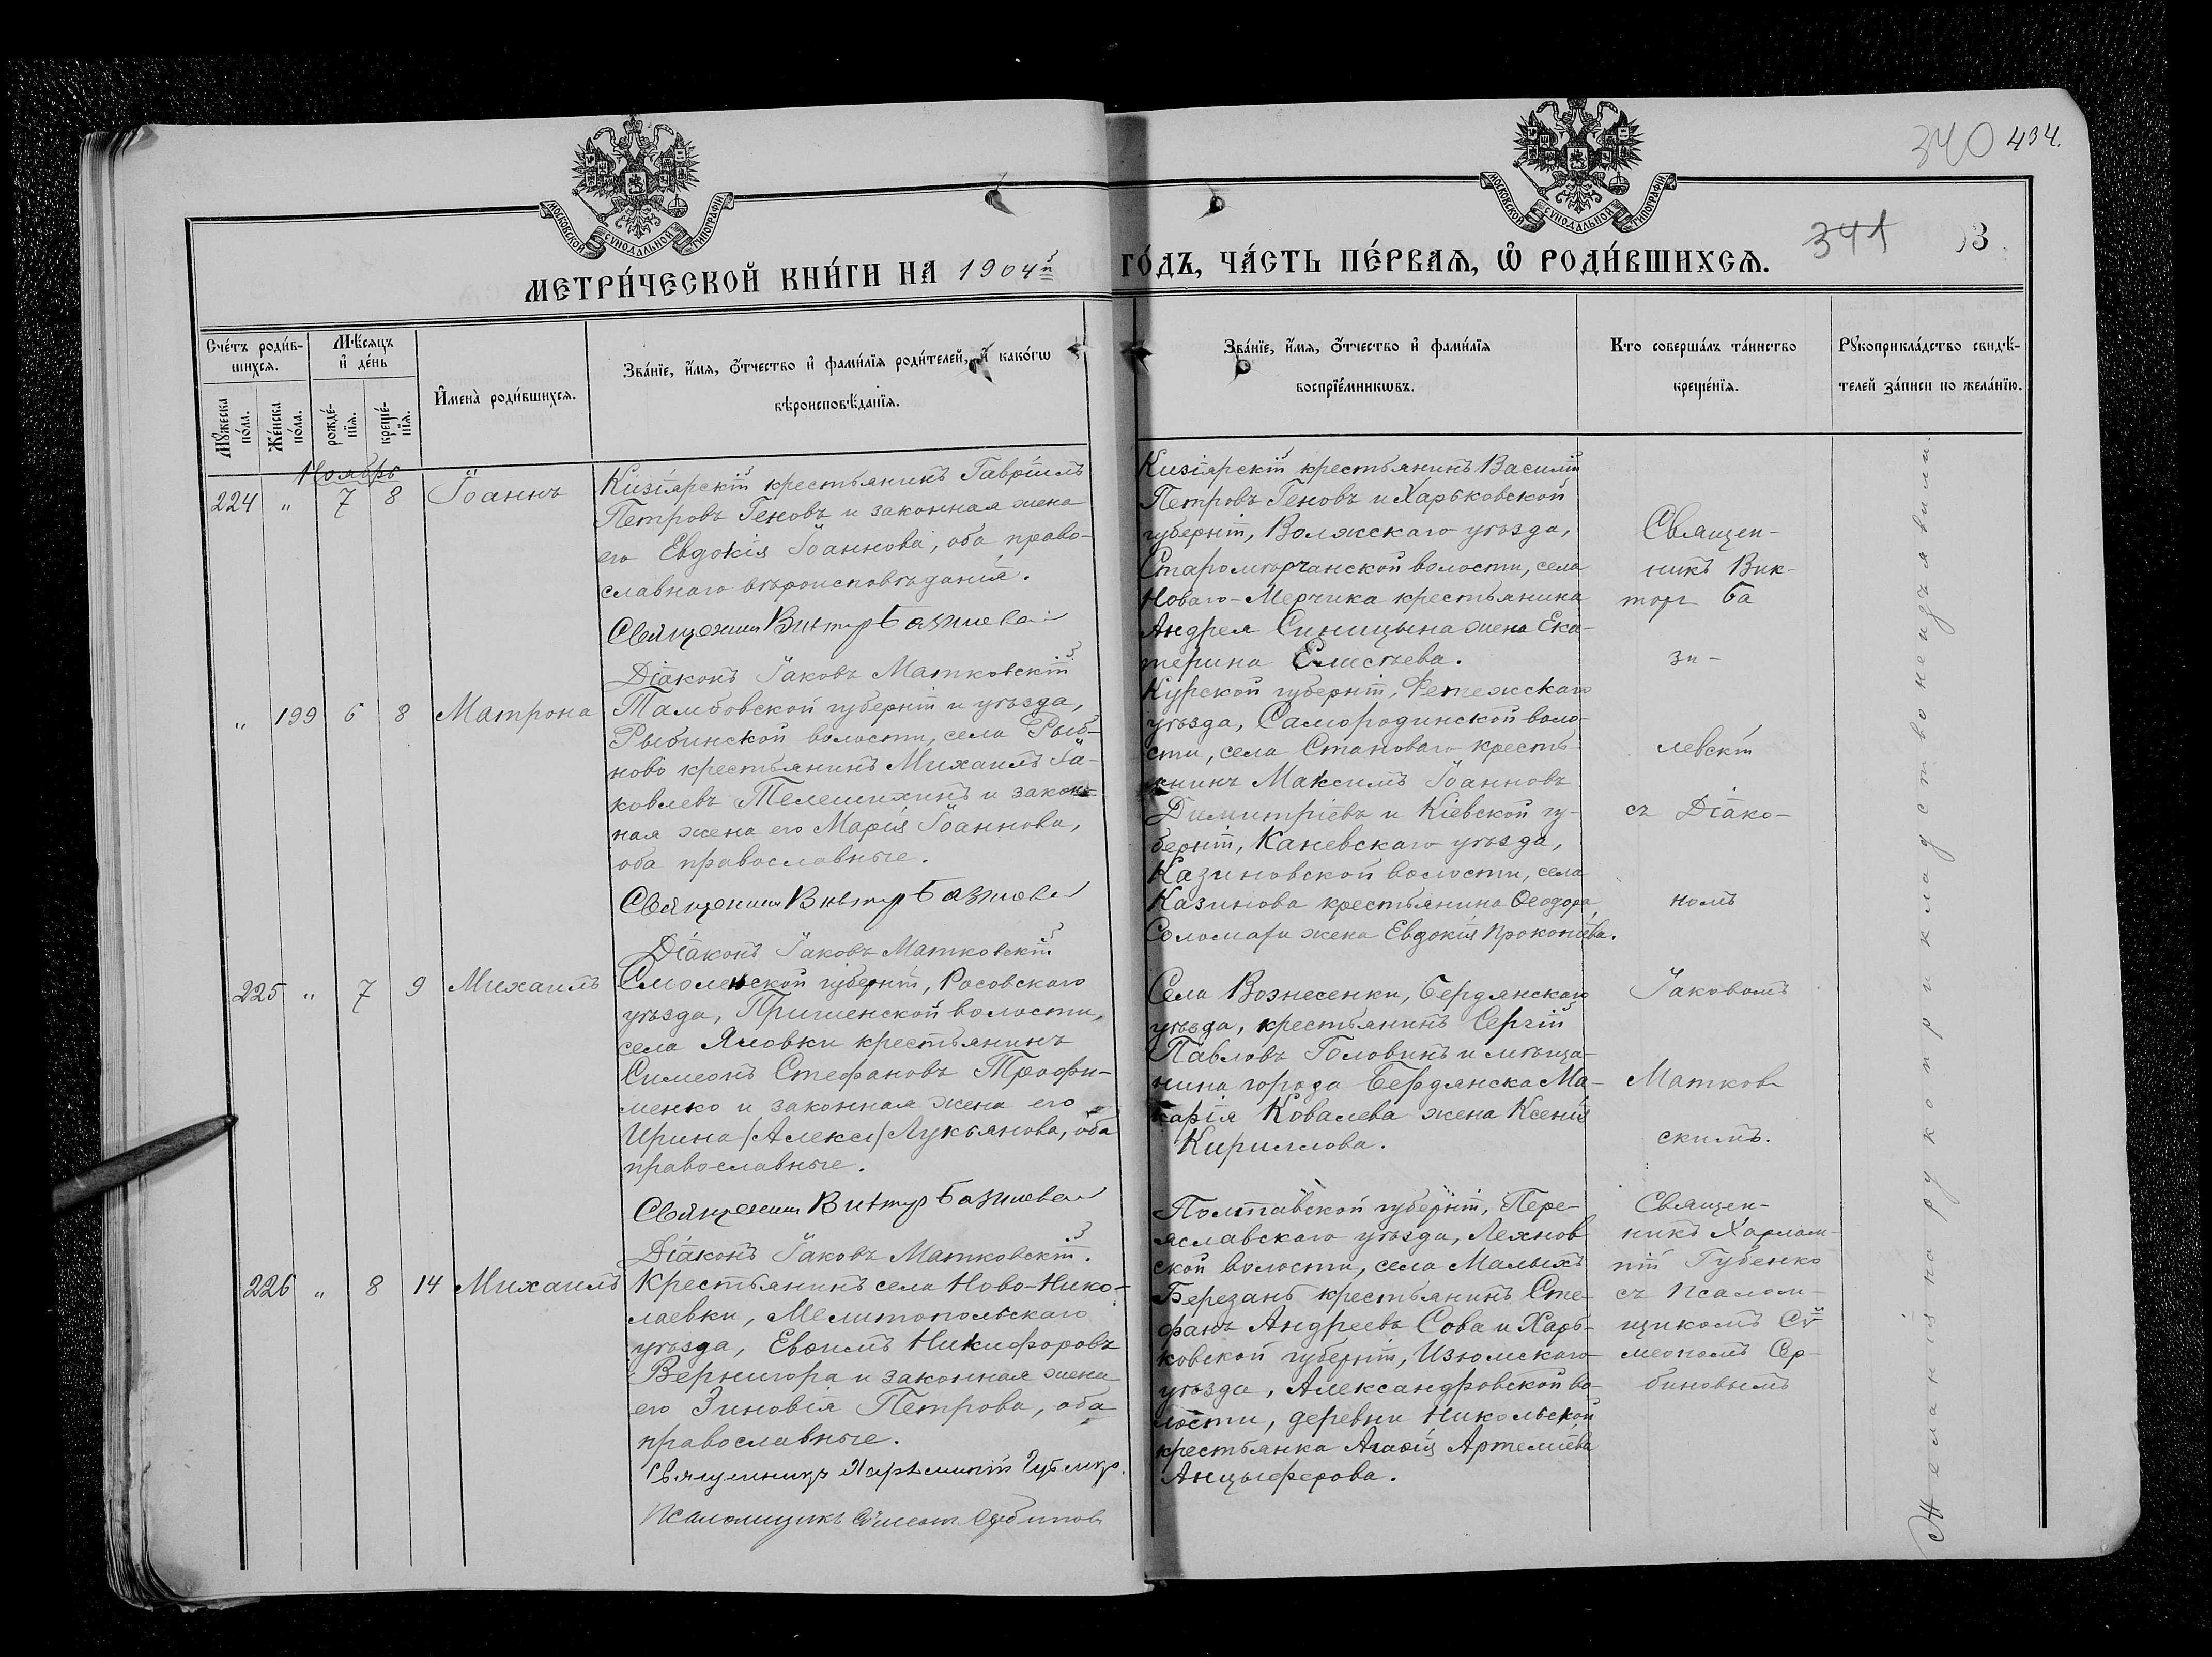 340 434.
МОСКОВСКОЙ СѴНОДАЛЬНОЙ ТИПОГРАФІИ
МОСКОВСКОЙ СѴНОДАЛЬНОЙ ТИПОГРАФІИ
341
МЕТРИ́ЧЕСКОЙ КНИ́ГИ НА 1904й ГО́ДЪ, ЧА́СТЬ ПЕ́РВАѦ, Ѽ РОДИ́ВШИХСѦ.
Сче́тъ роди́в-
шихсѧ.
Мѣ́сѧцъ
и҆ де́нь
Мꙋ́жеска
по́ла.
Же́нска
по́ла.
рожде́-
нїѧ.
креще́-
нїѧ.
И҆мена̀ роди́вшихсѧ.
Зва́нїе, и҆́мѧ, ѻ҆́тчество и҆ фами́лїѧ роди́телей, и҆ како́гѡ
вѣроисповѣ́данїѧ.
Зва́нїе, и҆́мѧ, ѻ҆́тчество и҆ фами́лїѧ
воспрїе́мникѡвъ.
Кто соверша́лъ та́инство
креще́нїѧ.
Рꙋкоприкла́дство свидѣ́-
телей за́писи по жела́нїю.
Ноябрь
224 " 7 8 Іоаннъ
Кизіярскій крестьянинъ Гавріилъ
Петровъ Геновъ и законная жена
его Евдокія Іоаннова, оба право-
славнаго вѣроисповѣданія.
Священникъ Викторъ Базилевскій
Діаконъ Іаковъ Матковскій
Кизіярскій крестьянинъ Василій
Петровъ Геновъ и Харьковской
губерніи, Волжскаго уѣзда,
Старомѣрчанской волости, села
Новаго-Мерчика крестьянина
Андрея Синицына жена Ека-
терина Елисѣева.
Священ-
никъ Вик-
торъ Ба
зи-
левскій
съ Діако-
номъ
Іаковомъ
Матков
скимъ.
" 199 6 8 Матрона
Тамбовской губерніи и уѣзда,
Рыбинской волости, села Рыб-
ново крестьянинъ Михаилъ Іа-
ковлевъ Телешихинъ и закон-
ная жена его Марія Іоаннова,
оба православные.
Священникъ Викторъ Базилевскій
Діаконъ Іаковъ Матковскій
Курской губерніи, Фетежскаго
уѣзда, Самородинской воло-
сти, села Становаго кресть-
янинъ Максимъ Іоанновъ
Димитріевъ и Кіевской гу-
берніи, Каневскаго уѣзда,
Казиновской волости, села
Казинова крестьянина Ѳеодора
Соломахи жена Евдокія Прокопіева.
225 " 7 9 Михаилъ
Смоленской губерніи, Росовскаго
уѣзда, Пришенской волости,
села Яновки крестьянинъ
Симеонъ Стефановъ Трофи-
менко и законная жена его
Ирина /Алекс/ Лукьянова, оба
православные.
Священникъ Викторъ Базилевскій
Діаконъ Іаковъ Матковскій.
Села Вознесенки, Бердянскаго
уѣзда, крестьянинъ Сергій
Павловъ Головинъ и мѣща-
нина города Бердянска Ма-
карія Ковалева жена Ксенія
Кириллова.
226 " 8 14 Михаилъ
Крестьянинъ села Ново-Нико-
лаевки, Мелитопольскаго
уѣзда, Евѳимъ Никифоровъ
Вернигора и законная жена
его Зиновія Петрова, оба
православные.
Священникъ Харлампій Губенко.
Псаломщикъ Сѵмеонъ Сербиновъ
Полтавской губерніи, Пере-
яславскаго уѣзда, Лехнов
ской волости, села Малыхъ
Березань крестьянинъ Сте-
фанъ Андреевъ Сова и Харь-
ковской губерніи, Изюмскаго
уѣзда, Александровской во-
лости, деревни Никольской
крестьянка Агаѳія Артеміева
Анцыферова.
Священ-
никъ Харлам-
пій Губенко
съ псалом-
щикомъ Сѵ-
меономъ Сер-
биновымъ
Желанія на рукоприкладство не изъявили.